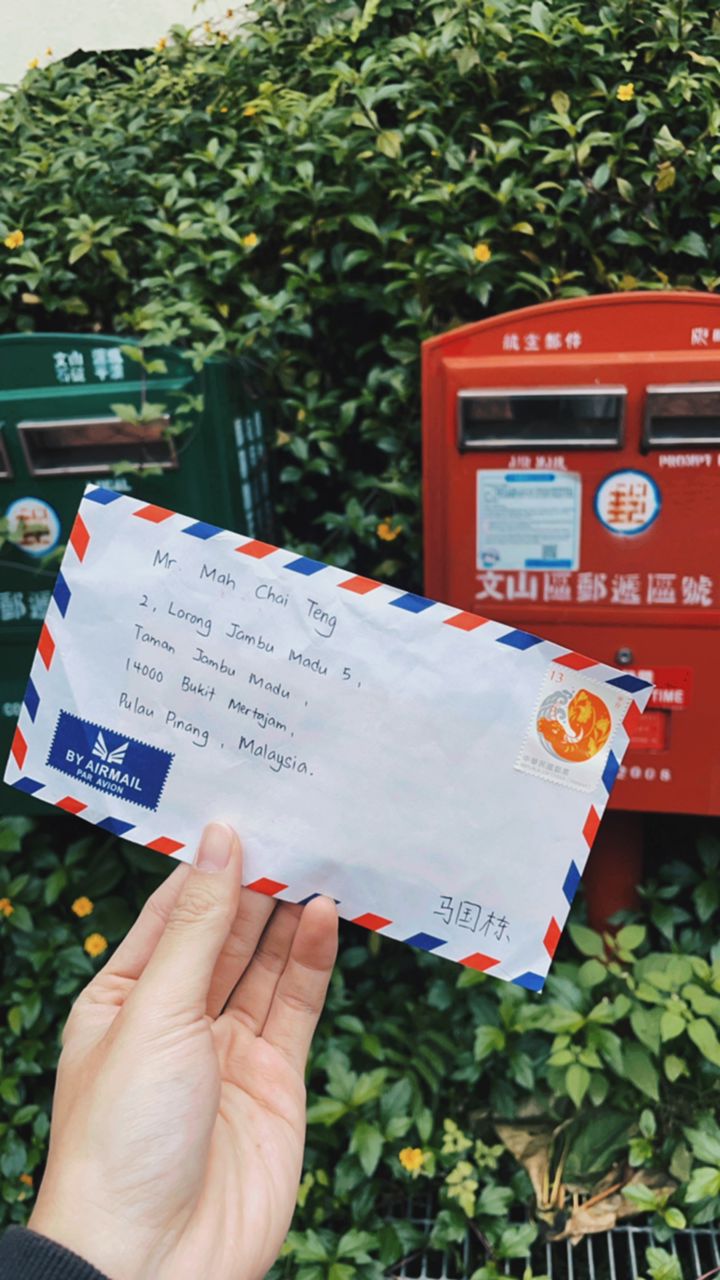 文山
航空郵件
郵
文山區郵遞區號
TIME
2008
Mr. Mah Chai Teng
2, Lorong Jambu Madu 5,
Taman Jambu Madu,
14000 Bukit Mertajam,
Pulau Pinang, Malaysia.
BY AIRMAIL
PAR AVION
13
中華民國郵票
马国栋